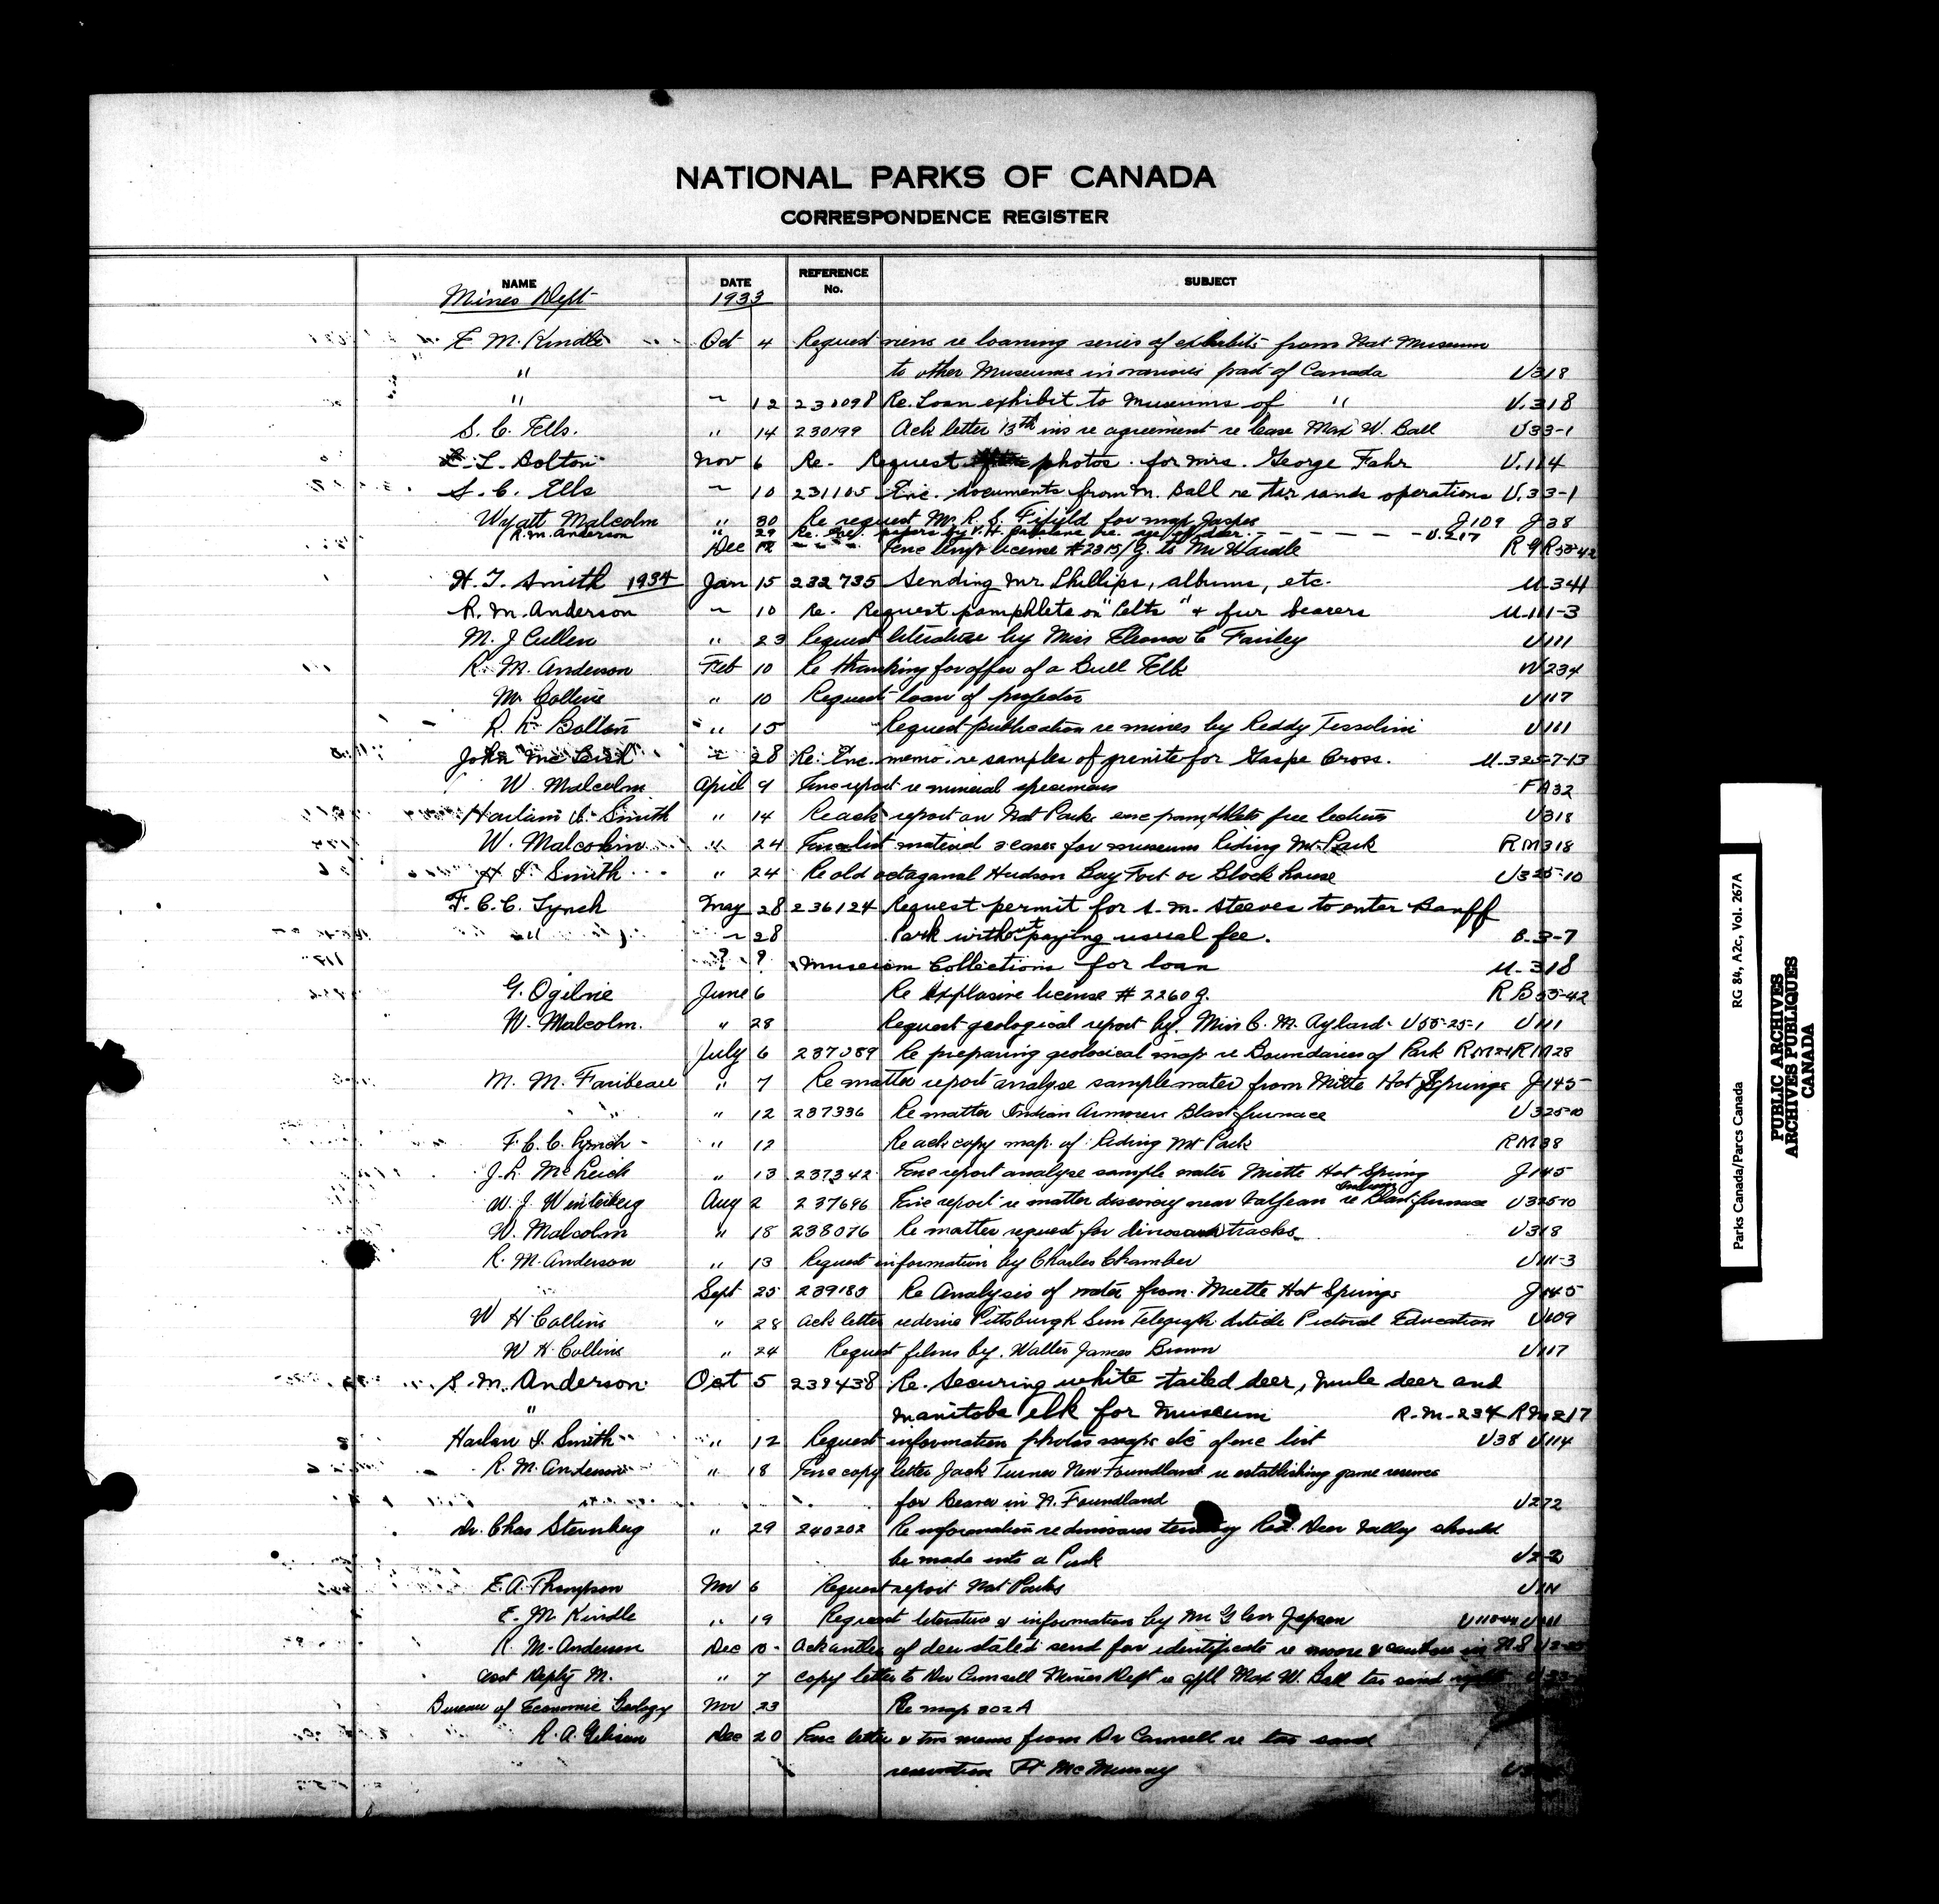 NATIONAL PARKS OF CANADA
CORRESPONDENCE REGISTER
NAME DATE REFERENCE No. SUBJECT
Mines Dept 1933
E. M. Kindle Oct 4 Request views re loaning series of exhibits from Nat Museum
" to other Museums in various part of Canada U318
" " 12 230098 Re. Loan exhibit to Museums of " U.318
S. C. Ells. " 14 230199 Ack letter 13th ins re agreement re lease Max W. Ball U33-1
L. L. Bolton Nov 6 Re. Request photos. for Mrs. George Fahr U.114
S. C. Ells " 10 231105 Enc. documents from M. Ball re tar sands operations U.33-1
Wyatt Malcolm " 30 Re request Mr R. S. Fifield for map Jasper J109 J38
R. M. Anderson " 29 Re. papers by deer. U.217
Dec 12 Enc license #2315/G. to Mr Hardle R G R 55-42
H. I. Smith 1934 Jan 15 232735 Sending Mr. Phillips, albums, etc. U-344
R. M. Anderson " 10 Re. Request pamphlets on "Pelts" & fur bearers U-111-3
M. J Cullen " 23 Request literature by Miss Eleanor C Fairley U111
R. M. Anderson Feb 10 Re thanking for offer of a Bull Elk W234
Mr Collins " 10 Request loan of projector U117
" 15 Request publication re mines by Reddy Tessolini U111
John McLeish " 28 Re: Enc. memo. re samples of granite for Gaspe Cross. U-325-7-13
W. Malcolm April 9 Enc report re mineral specimens FA32
Harlan I. Smith " 14 Re ack report on Nat Parks enc pamphlets free lectures U318
W. Malcolm " 24 Enc list material & cases for museum Riding Mt. Park RM318
H I. Smith " 24 Re old octagonal Hudson Bay Fort or Block house U325-10
F. C. C. Lynch May 28 236124 Request permit for S. M. Steeves to enter Banff
" " 28 Park without paying usual fee. B-3-7
? ? Museum Collections for loan U-318
G. Ogilvie June 6 Re Explosive license # 2260 G. R B 55-42
W. Malcolm. " 28 Request geological report by. Miss C. M. Aylard. U55-25-1 U111
July 6 237089 Re preparing geological map re Boundaries of Park RM28
M. M. Faribeau " 7 Re matter report analyse sample water from Miette Hot Springs J145
" " 12 237336 Re matter Indian Armourer Blast furnace U325-10
F. C. C. Lynch " 12 Re ack copy map of Riding Mt Park RM38
J. L. McLeish " 13 237342 Enc report analyse sample water Miette Hot Spring J145
W. J. Wintemberg Aug 2 237696 Enc report re matter discovery near re Indian Blast furnace U325-10
W. Malcolm " 18 238076 Re matter request for dinosaur tracks. U318
R. M. Anderson " 13 Request information by Charles Chamber U111-3
Sept 25 239180 Re Analysis of water from Miette Hot Springs J145
W H Collins " 28 Ack letter re desire Pittsburgh Sun Telegraph Article Pictorial Education U109
W H. Collins " 24 Request films by. Walter James Brown U117
R. M. Anderson Oct 5 239438 Re. Securing white-tailed deer, mule deer and
" Manitoba elk for Museum R.M-234 RM217
Harlan I. Smith " 12 Request information photos maps etc of enc list U38 U114
R. M. Anderson " 18 Enc copy letter Jack Turner New Foundland re establishing game reserve
for Beaver in N. Foundland U272
Dr. Chas Sternberg " 29 240202 Re information re dinosaurs territory Red. Deer Valley should
be made into a Park U2-2
E. A. Thompson Nov 6 Request report Nat Parks
E. M. Kindle " 19 Request literature & information by Mr Glen Jepson
R. M. Anderson Dec Ack antler of deer stated send for identificate re moose & caribou in N.S
asst Depty M. " 7 copy letter to Dr Camsell Mines Dept re appl Max W. Ball tar sand
Bureau of Economic Geology Nov 23 Re map 302A
R. A. Gibson Dec 20 Enc letter & two memos from Dr Camsell re tar sand
reservation Ft McMurray
Parks Canada/Parcs Canada RG 84, A2c, Vol. 267A
PUBLIC ARCHIVES
ARCHIVES PUBLIQUES
CANADA